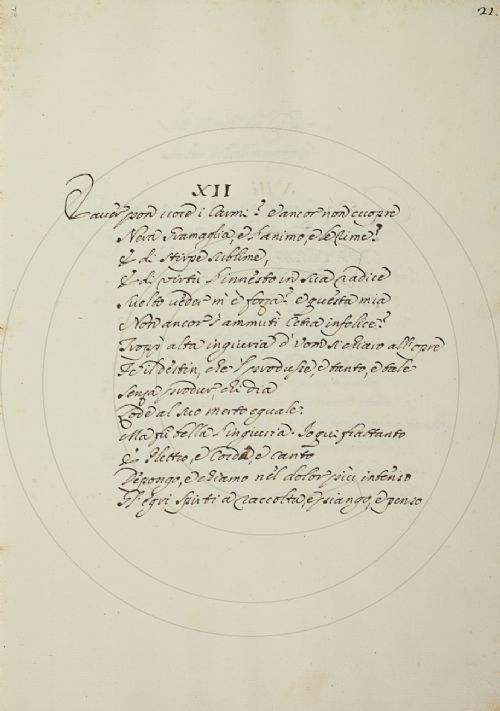 21.
XII
pon uoce i Carmi? e ancor non cuopre
Nera Gramaglia, e l'animo, e le Rime?
E di Stirpe sublime,
E di virtù l'innesto in sua radice
Suelto ueder m'è forza? e questa mia
Non ancor s'ammutì Cetra infelice?
Tropp' alta ingiuria d'Uom sì chiaro all'opre
Fe il destin, che 'l produsse, e tanto, e tale
Senza produr, chi dia
Lode al suo merto eguale.
Ma fu bella l'ingiuria. Io qui frattanto
E Plettro, e Corda, e canto
Depongo, e chiamo nel dolor più intenso
Gl'egri spirti a raccolta, e piango, e penso